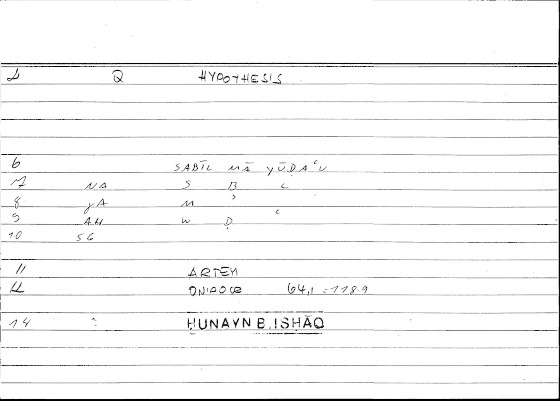 Q HYPOTHESIS
6 SABĪL MĀ YŪDAʿU
7 NA S B L
8 YA M ʾ
9 AH W Ḍ ʿ
10 56
11 ARTEM
12 64,1 = 118.9
14 HUNAYN B. ISHĀQ